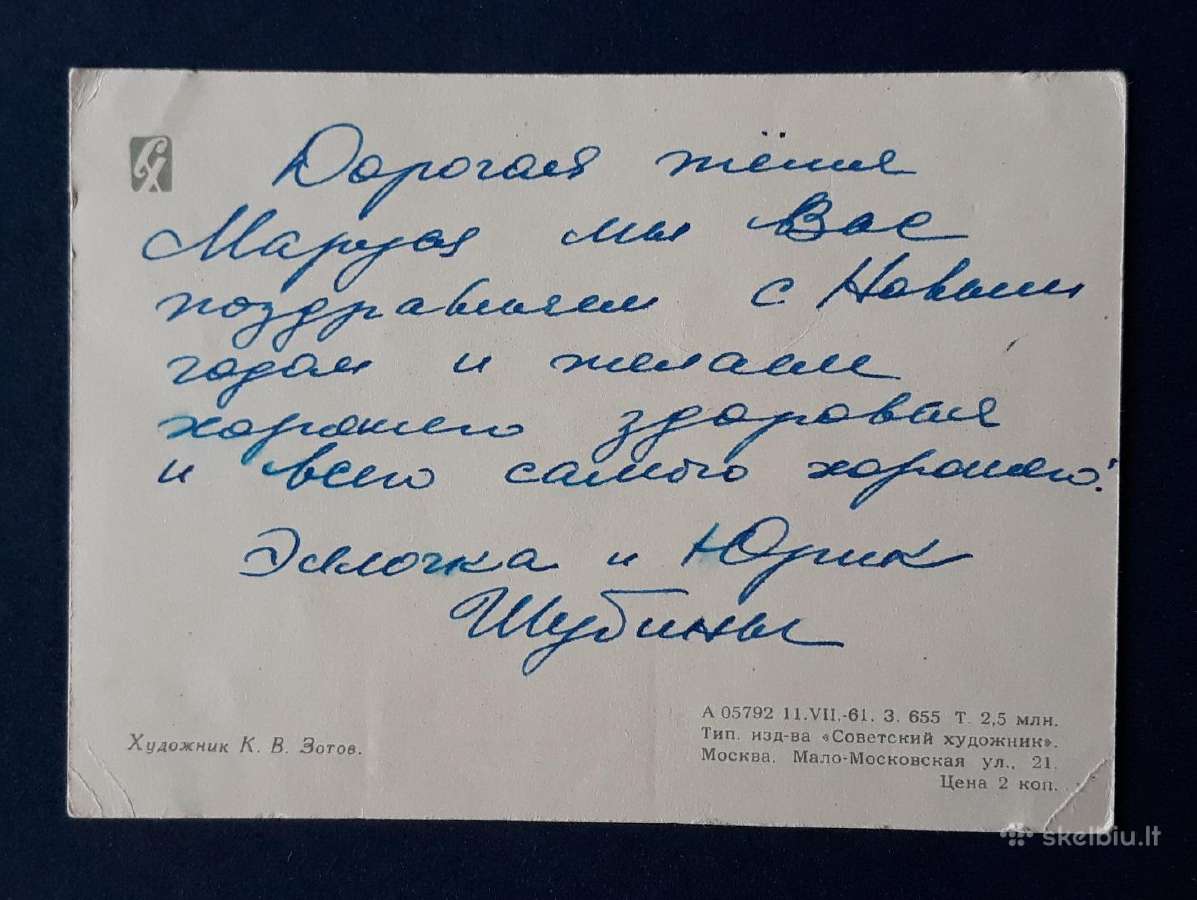 Дорогая тётя
Маруся мы Вас
поздравляем с Новым
годом и желаем
хорошего здоровья
и всего самого хорошего!
Эллочка и Юрик
Шубины
Художник К. В. Зотов.
А 05792 11.VII.-61. З. 655 Т. 2,5 млн.
Тип. изд-ва «Советский художник».
Москва, Мало-Московская ул., 21.
Цена 2 коп.
skelbiu.lt